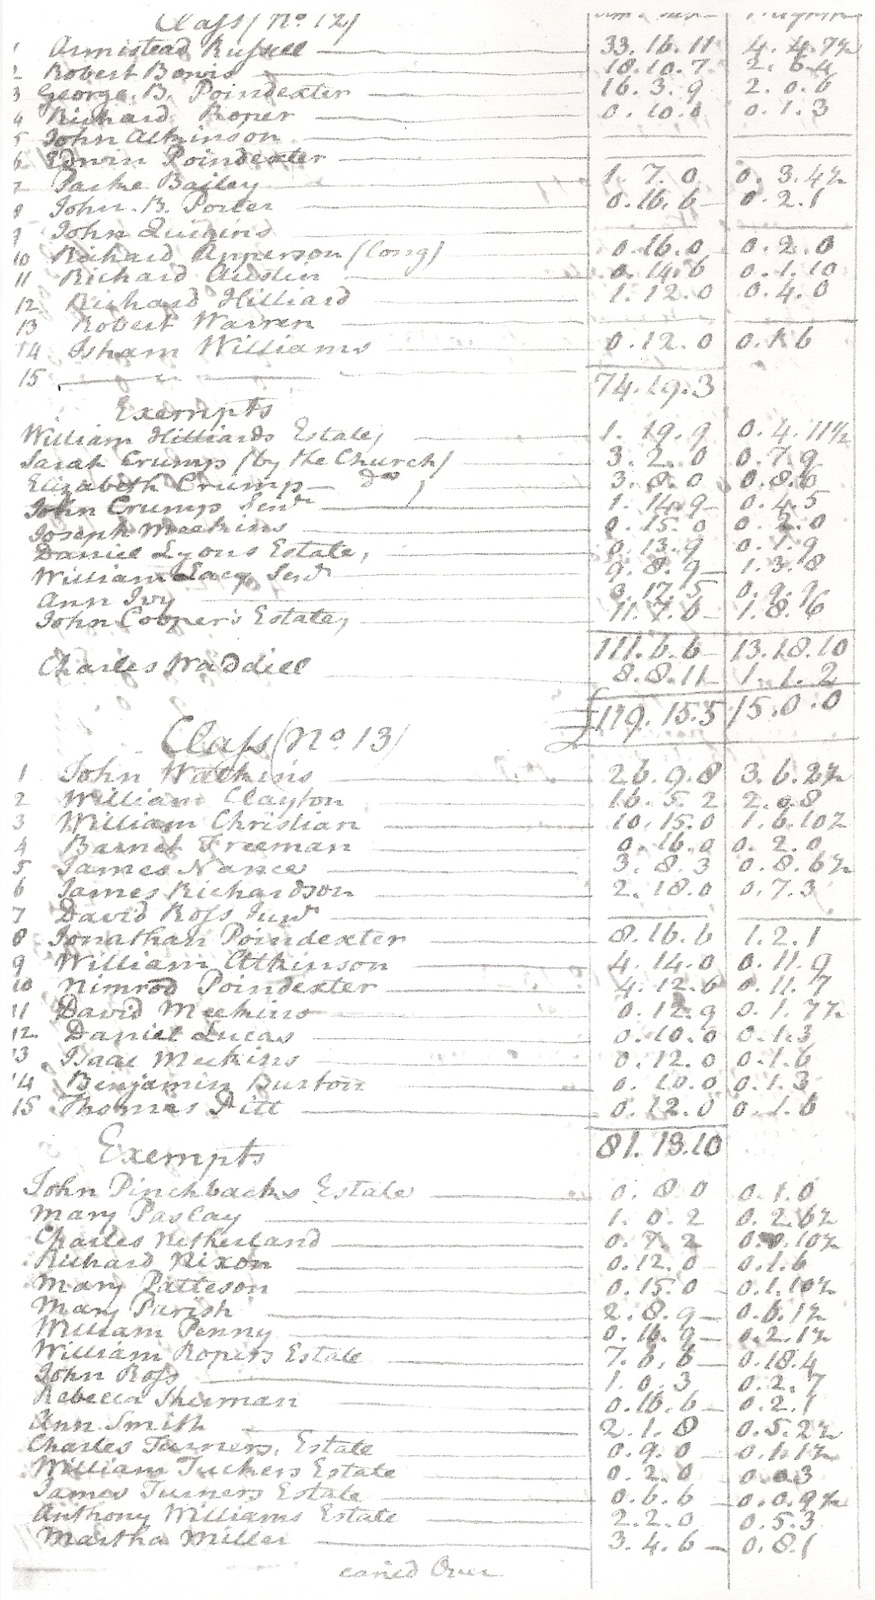 Class (No. 12)
1 Armistead Russell 33.16.11 4.4.7½
2 Robert Bowis 18.10.7 2.6.4
3 George B. Poindexter 16.3.9 2.0.6
4 Richard Roper 0.10.0 0.1.3
5 John Atkinson
6 Edwin Poindexter
7 Parke Bailey 1.7.0 0.3.4½
8 John B. Porter 0.16.6 0.2.1
9 John Quigins
10 Richard Apperson (long) 0.16.0 0.2.0
11 Richard Austin 0.14.6 0.1.10
12 Richard Hilliard 1.12.0 0.4.0
13 Robert Warren
14 Isham Williams 0.12.0 0.1.6
15
74.19.3
Exempts
William Hilliards Estate, 1.19.9 0.4.11½
Sarah Crump (by the Church) 3.2.0 0.7.9
Elizabeth Crump do ) 3.8.0 0.8.6
John Crump Senr 1.14.9 0.4.5
Joseph Meekins 0.15.0 0.2.0
Daniel Lyons Estate, 0.13.9 0.1.9
William Lacy Senr 9.8.9 1.3.8
Ann Ivy 3.17.5 0.9.9
John Cooper's Estate, 11.7.6 1.8.6
111.6.6 13.18.10
Charles Waddill 8.8.11 1.1.2
£119.15.5 15.0.0
Class (No. 13)
1 John Watkins 26.9.8 3.6.2½
2 William Clayton 16.5.2 2.0.8
3 William Christian 10.15.0 1.6.10½
4 Barnet Freeman 0.16.0 0.2.0
5 James Nance 3.8.3 0.8.6½
6 James Richardson 2.18.0 0.7.3
7 David Ross Junr
8 Jonathan Poindexter 8.16.6 1.2.1
9 William Atkinson 4.14.0 0.11.9
10 Nimrod Poindexter 4.12.6 0.11.7
11 David Meekins 0.12.9 0.1.7½
12 Daniel Lucas 0.10.0 0.1.3
13 Isaac Meekins 0.12.0 0.1.6
14 Benjamin Burton 0.10.0 0.1.3
15 Thomas Pitt 0.12.0 0.1.6
81.18.10
Exempts
John Pinchbacks Estate 0.8.0 0.1.0
Mary Paslay 1.0.2 0.2.6½
Charles Netherland 0.7.2 0.0.10½
Richard Nixon 0.12.0 0.1.6
Mary Patteson 0.15.0 0.1.10½
Mary Parish 2.8.9 0.6.1½
William Penny 0.16.9 0.2.1½
William Ropers Estate 7.6.6 0.18.4
John Ross 1.0.3 0.2.7
Rebecca Sherman 0.16.6 0.2.1
Ann Smith 2.1.8 0.5.2½
Charles Turners Estate 0.9.0 0.1.1½
William Tuckers Estate 0.2.0 0.0.3
James Turners Estate 0.6.6 0.0.9¾
Anthony Williams Estate 2.2.0 0.5.3
Martha Miller 3.4.6 0.8.1
caried Over